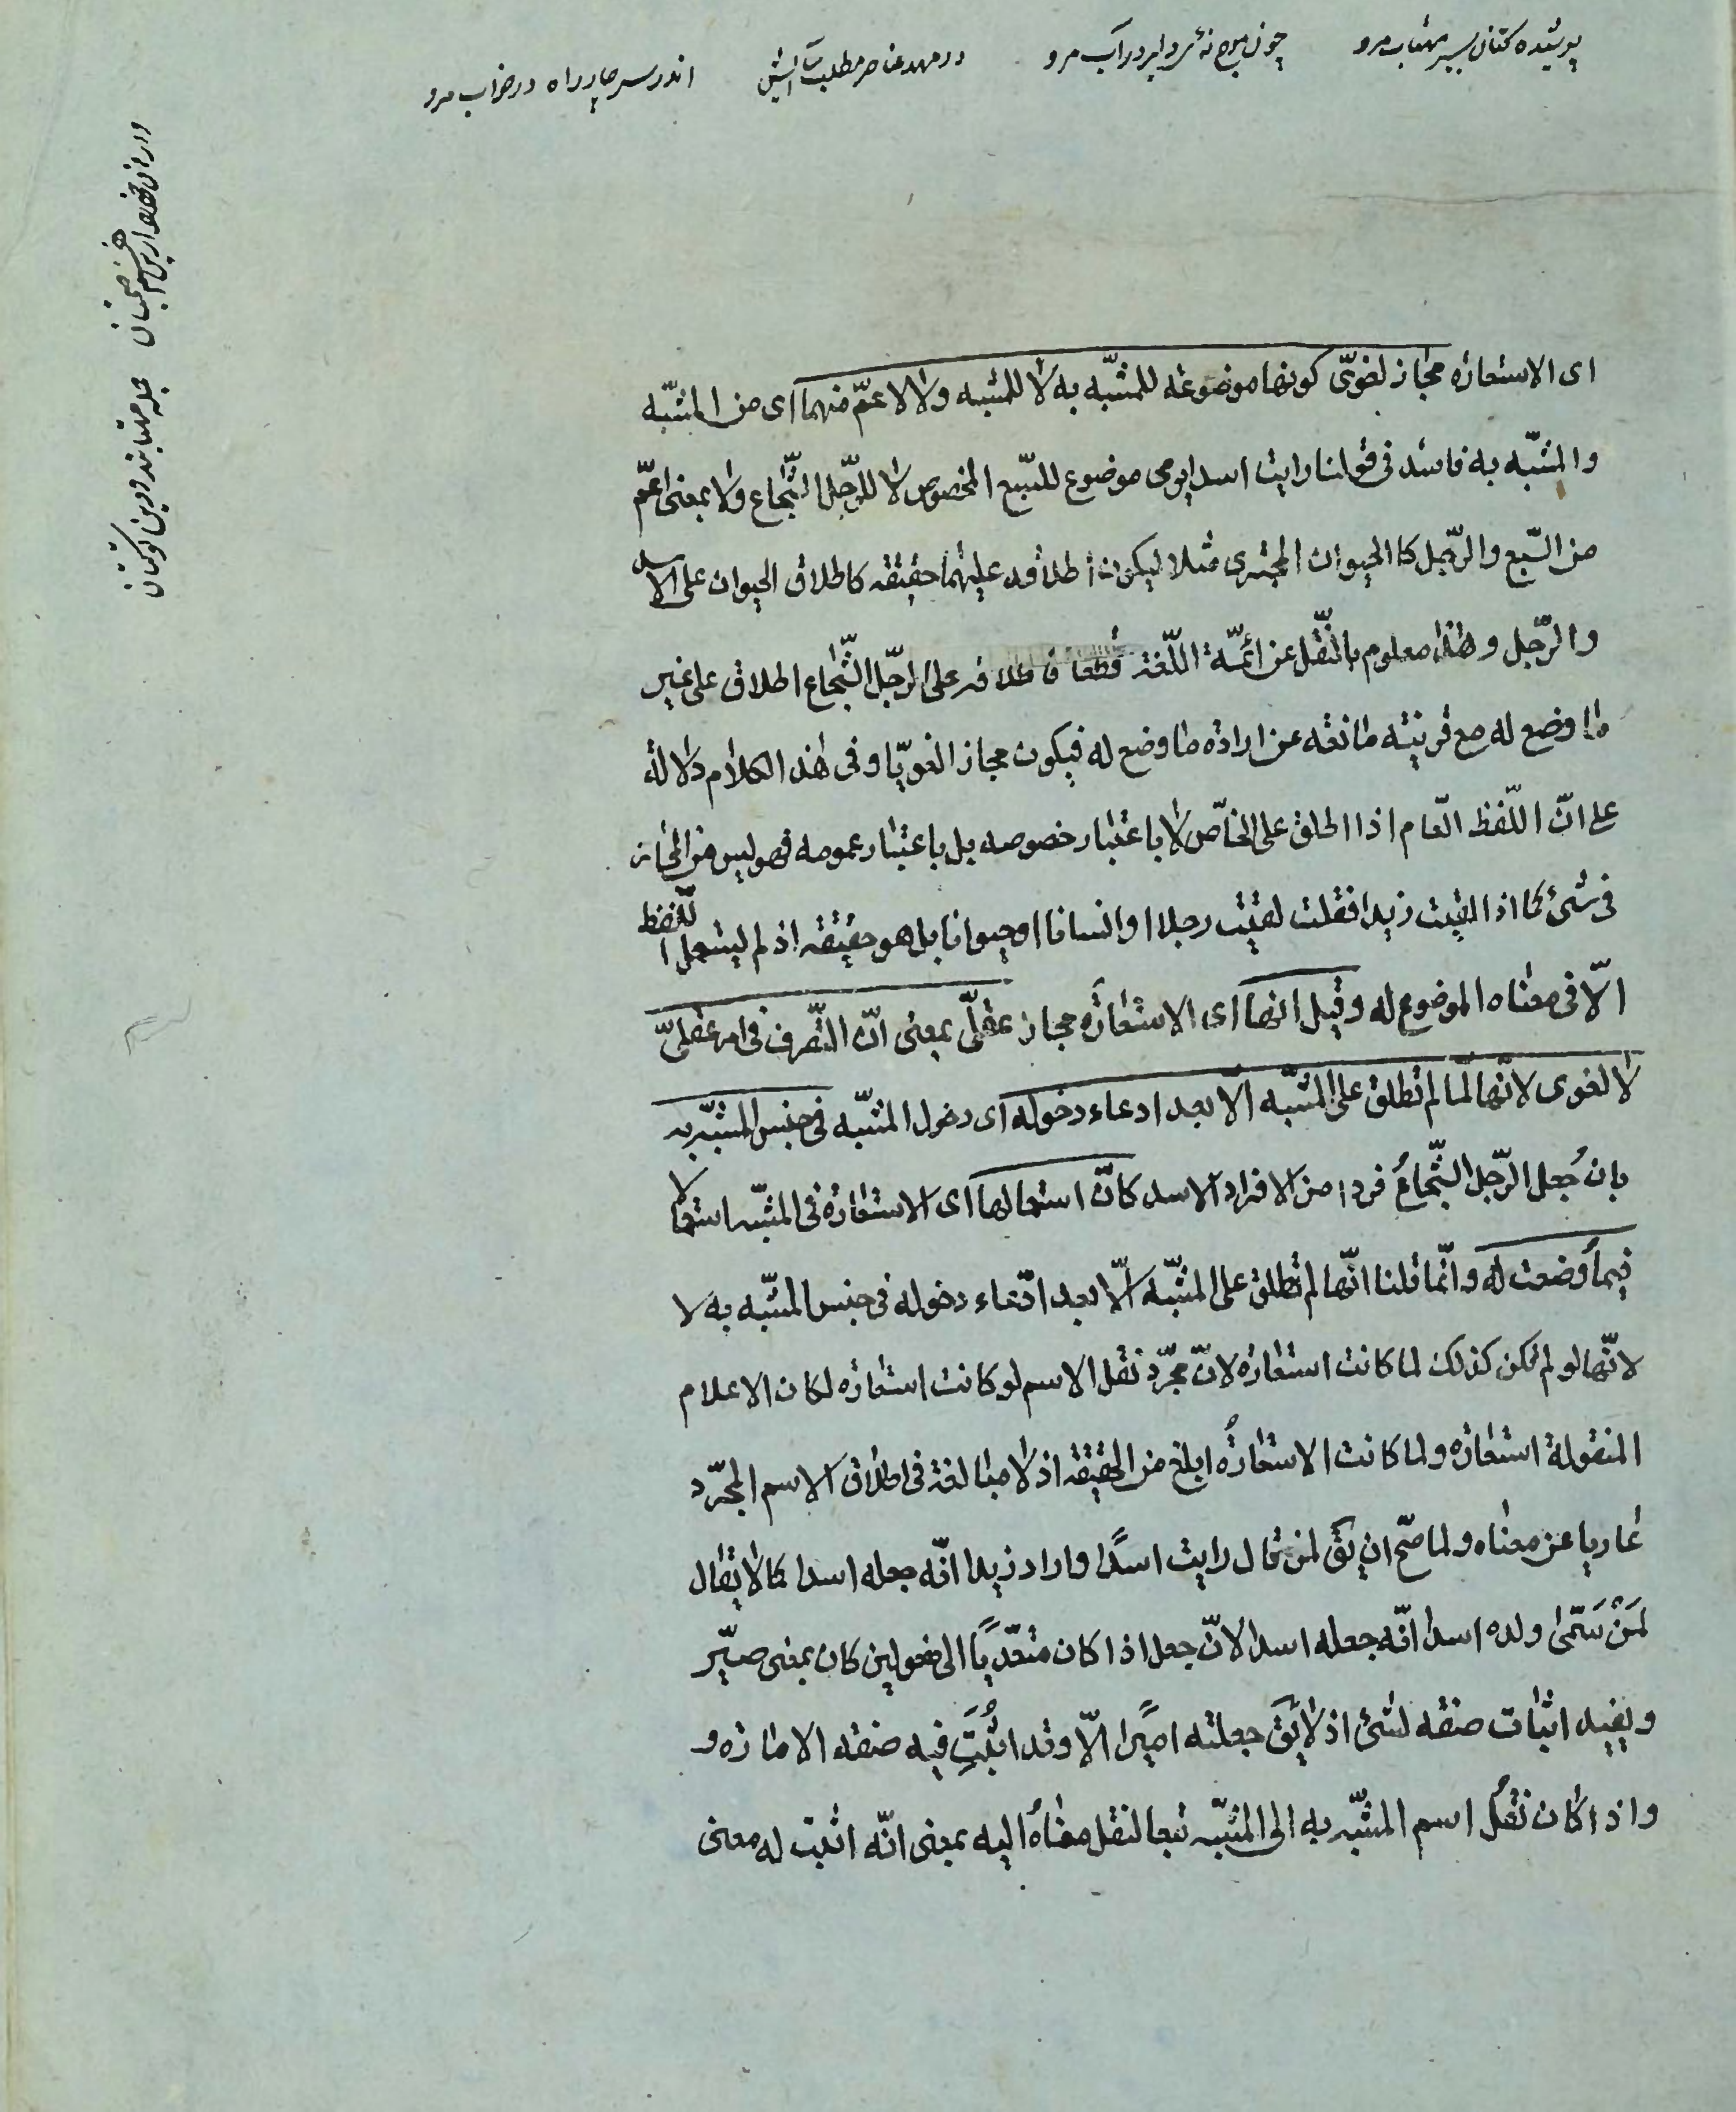 پوشیده کتان بسیر مهتاب مرو چون موج نهٔ دلیر در آب مرو در مهد عناصر مطلب آسایش اندر سر چار راه در خواب مرو
ای الاستعارة مجاز لغویّ کونها موضوعة للمشبّه به لا للمشبه ولا لاعمّ منهما ای من المشبّه
والمشبّه به فاسد فی قولنا رایت اسدا یرمی موضوع للسّبع المخصوص لا للرّجل الشّجاع ولا بمعنی اعمّ
من السّبع والرّجل کا الحیوان المجتری مثلا لیکون اطلاقه علیهما حقیقه کاطلاق الحیوان علی الاسد
والرّجل وهذا معلوم بالنّقل عن ائمّة اللّغة قطعا فاطلاقه علی الرّجل الشّجاع اطلاق علی غیر
ما وضع له مع قرینته مانعه عن اراده ما وضع له فیکون مجازا لغویّا وفی هذا الکلام دلالة
علی انّ اللّفظ العام اذا اطلق علی الخاصّ لا باعتبار خصوصه بل باعتبار عمومه فهو لیس من المجاز
فی شیء کما اذا لقیت زیدا فقلت لقیت رجلا او انسانا او حیوانا بل هو حقیقه اذ لم یستعمل اللّفظ
الّا فی معناه الموضوع له وقیل انها ای الاستعارة مجاز عقلّی بمعنی انّ التّصرف فی امر عقلیّ
لا لغوی لانّها لمّا لم تطلق علی المشبّه الّا بعد ادعاء دخوله ای دخول المشبّه فی جنس المشبّه به
بان جُعل الرّجل الشّجاعُ فردا من الافراد الاسد کانّ استعمالها ای الاستعارة فی المشبّه استعمالا
فیما وضعت له وانّما قلنا انّها لم تطلق علی المشبّه الّا بعد ادّعاء دخوله فی جنس المشبّه به لا
لانّها لو لم تکن کذلک لما کانت استعاره لانّ مجرّد نقل الاسم لو کانت استعاره لکان الاعلام
المنقولة استعاره ولما کانت الاستعارةُ ابلغ من الحقیقه اذ لا مبالغة فی اطلاق الاسم المجرّد
عاریا عن معناه ولما صحّ ان یق لمن قال رایت اسدًا واراد زیدا انّه جعله اسدا کما لا یقال
لمَنْ سَمّی ولده اسدا انّه جعله اسدا لانّ جعل اذا کان متعدّیًا الی مفعولین کان بمعنی صیّر
ویفید اثبات صفه لشیء اذ لا یق جعلته امیرًا الّا وقد اثبتَ فیه صفه الاماره و
واذا کان نقلُ اسم المشبّه به الی المشبّه تبعا لنقل معناهُ الیه بمعنی انّه اثبت له معنی